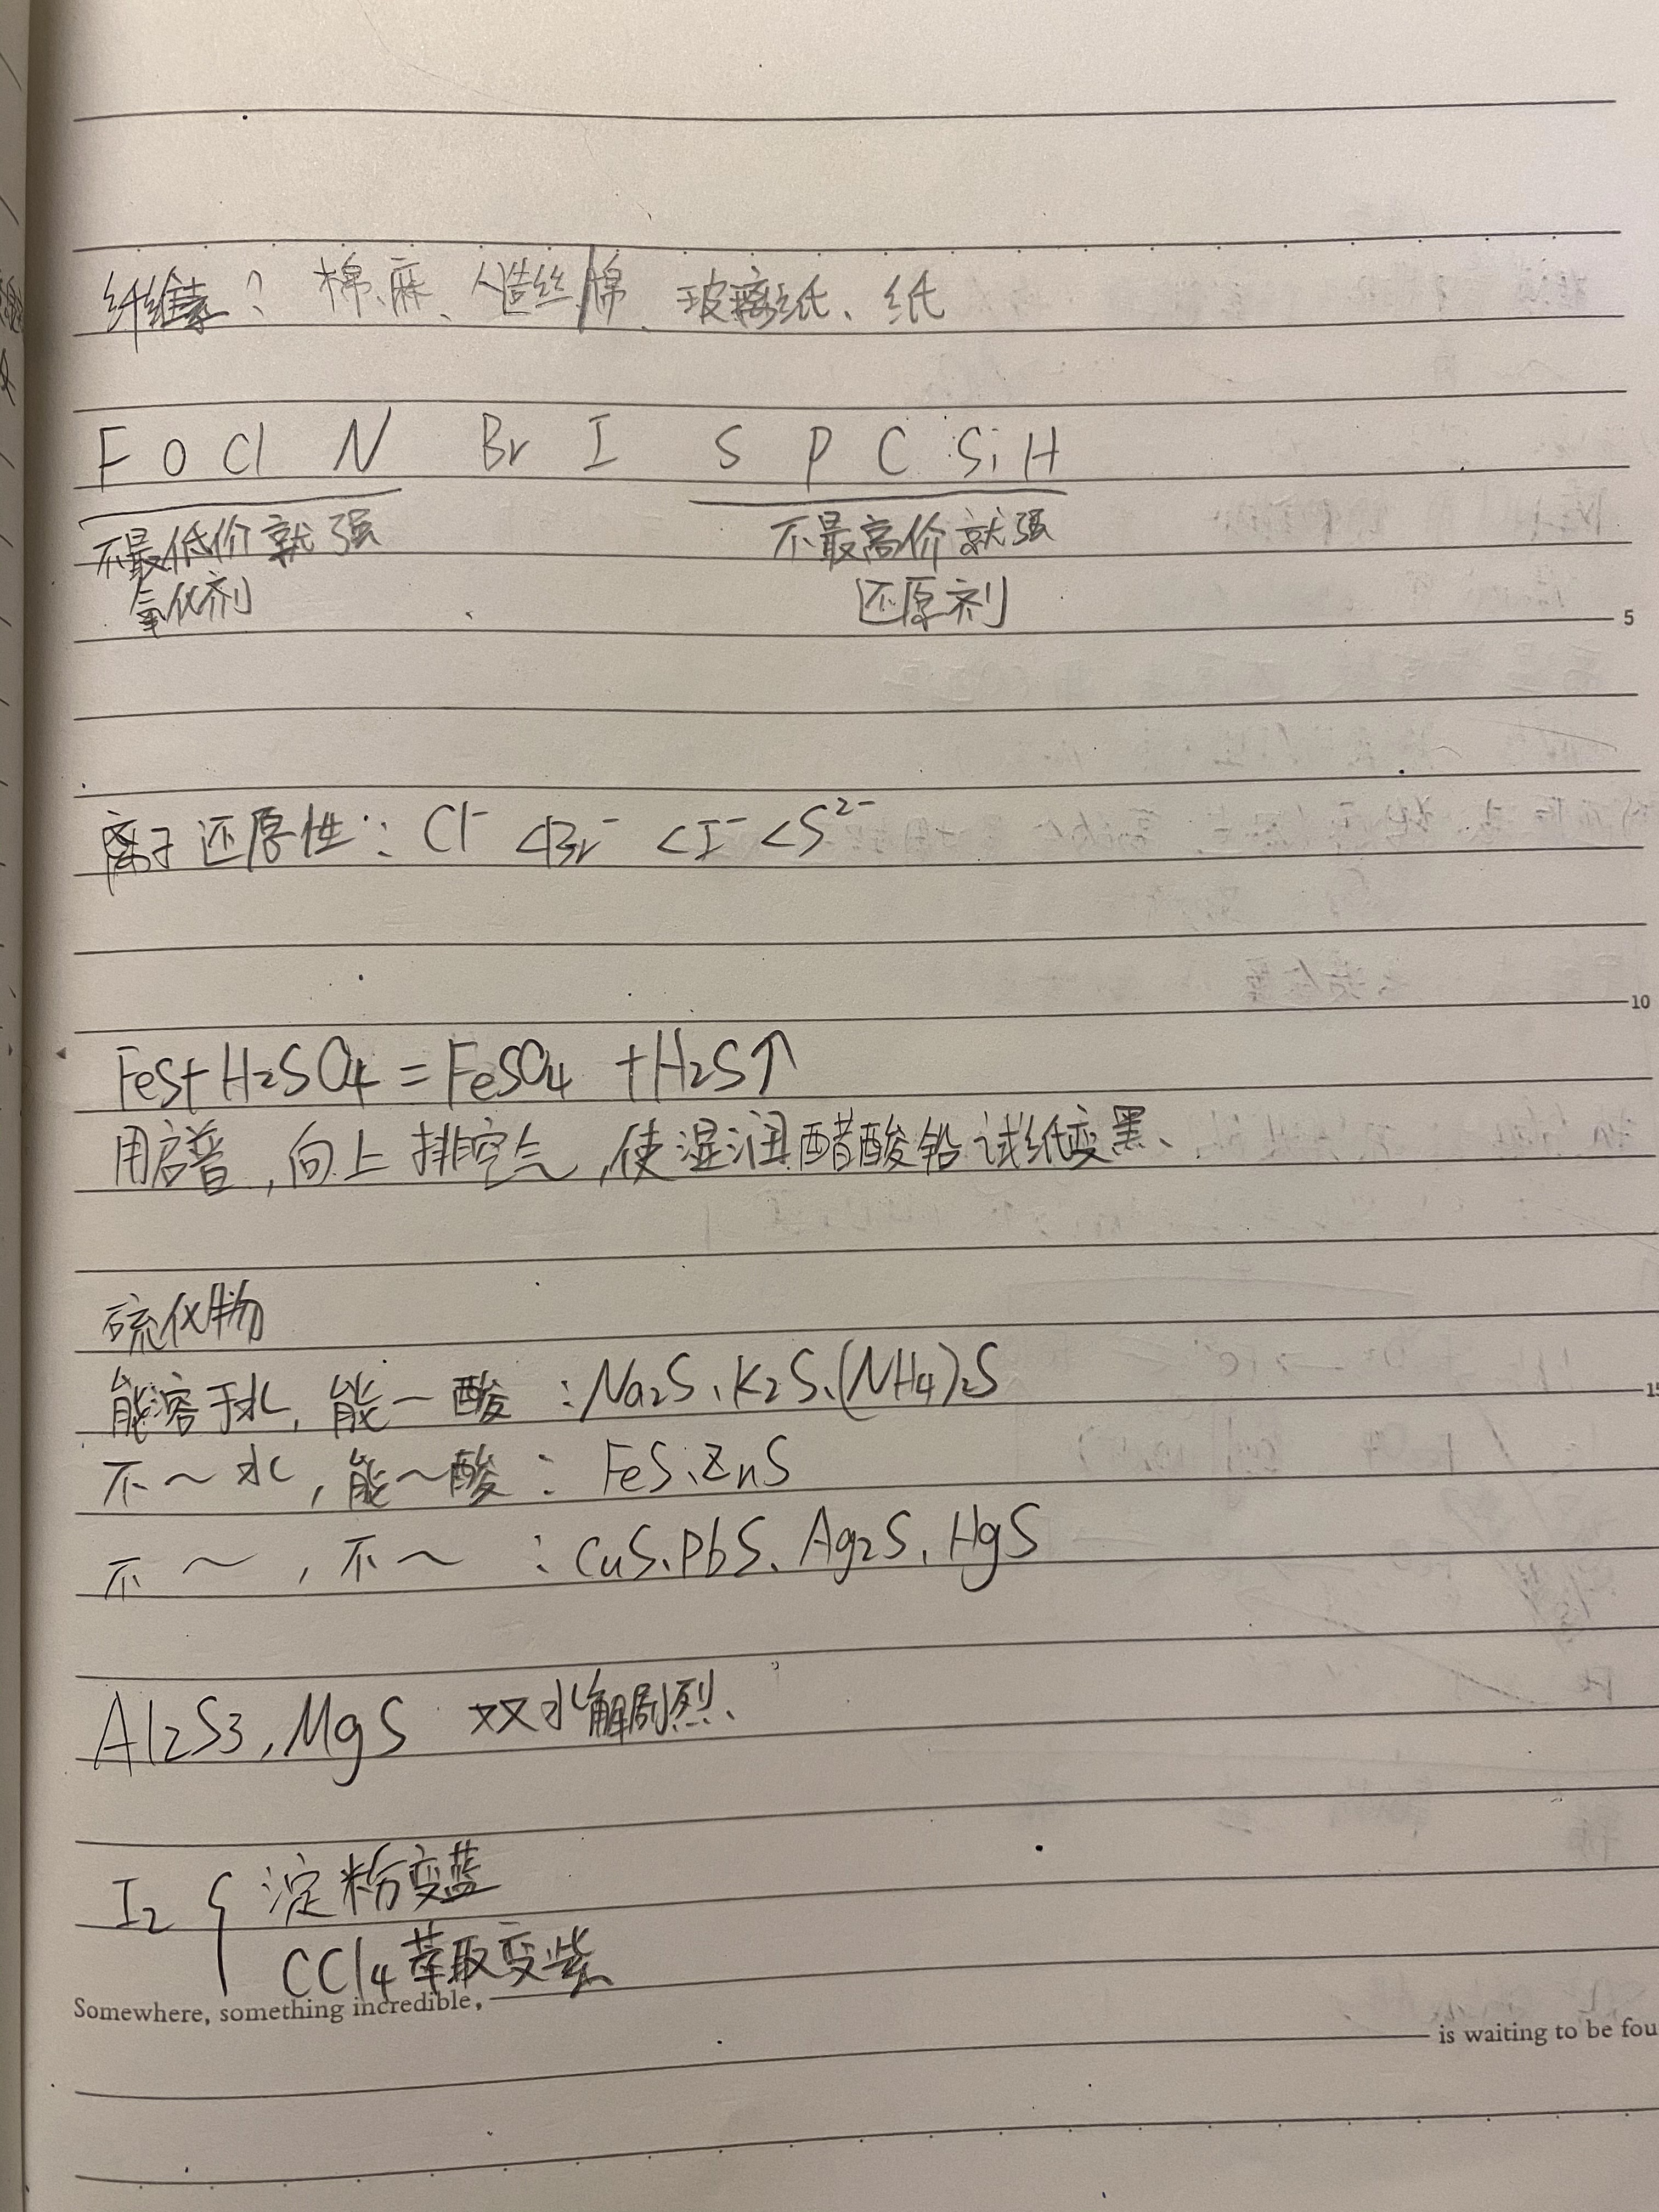 纤维素？棉、麻、人造丝/棉、玻璃纸、纸
F O Cl N Br I S P C Si H
不最低价就强 不最高价就强
氧化剂 还原剂
5
离子还原性：Cl⁻ <Br⁻ <I⁻ <S²⁻
10
FeS+H₂SO₄=FeSO₄ +H₂S↑
用启普，向上排空气，使湿润醋酸铅试纸变黑、
硫化物
能溶于水，能~酸：Na₂S、K₂S、(NH₄)₂S
15
不~水，能~酸：FeS、ZnS
不~，不~：CuS、PbS、Ag₂S、HgS
Al₂S₃，MgS 双水解剧烈、
I₂ { 淀粉变蓝
CCl₄萃取变紫
Somewhere, something incredible,
is waiting to be fou